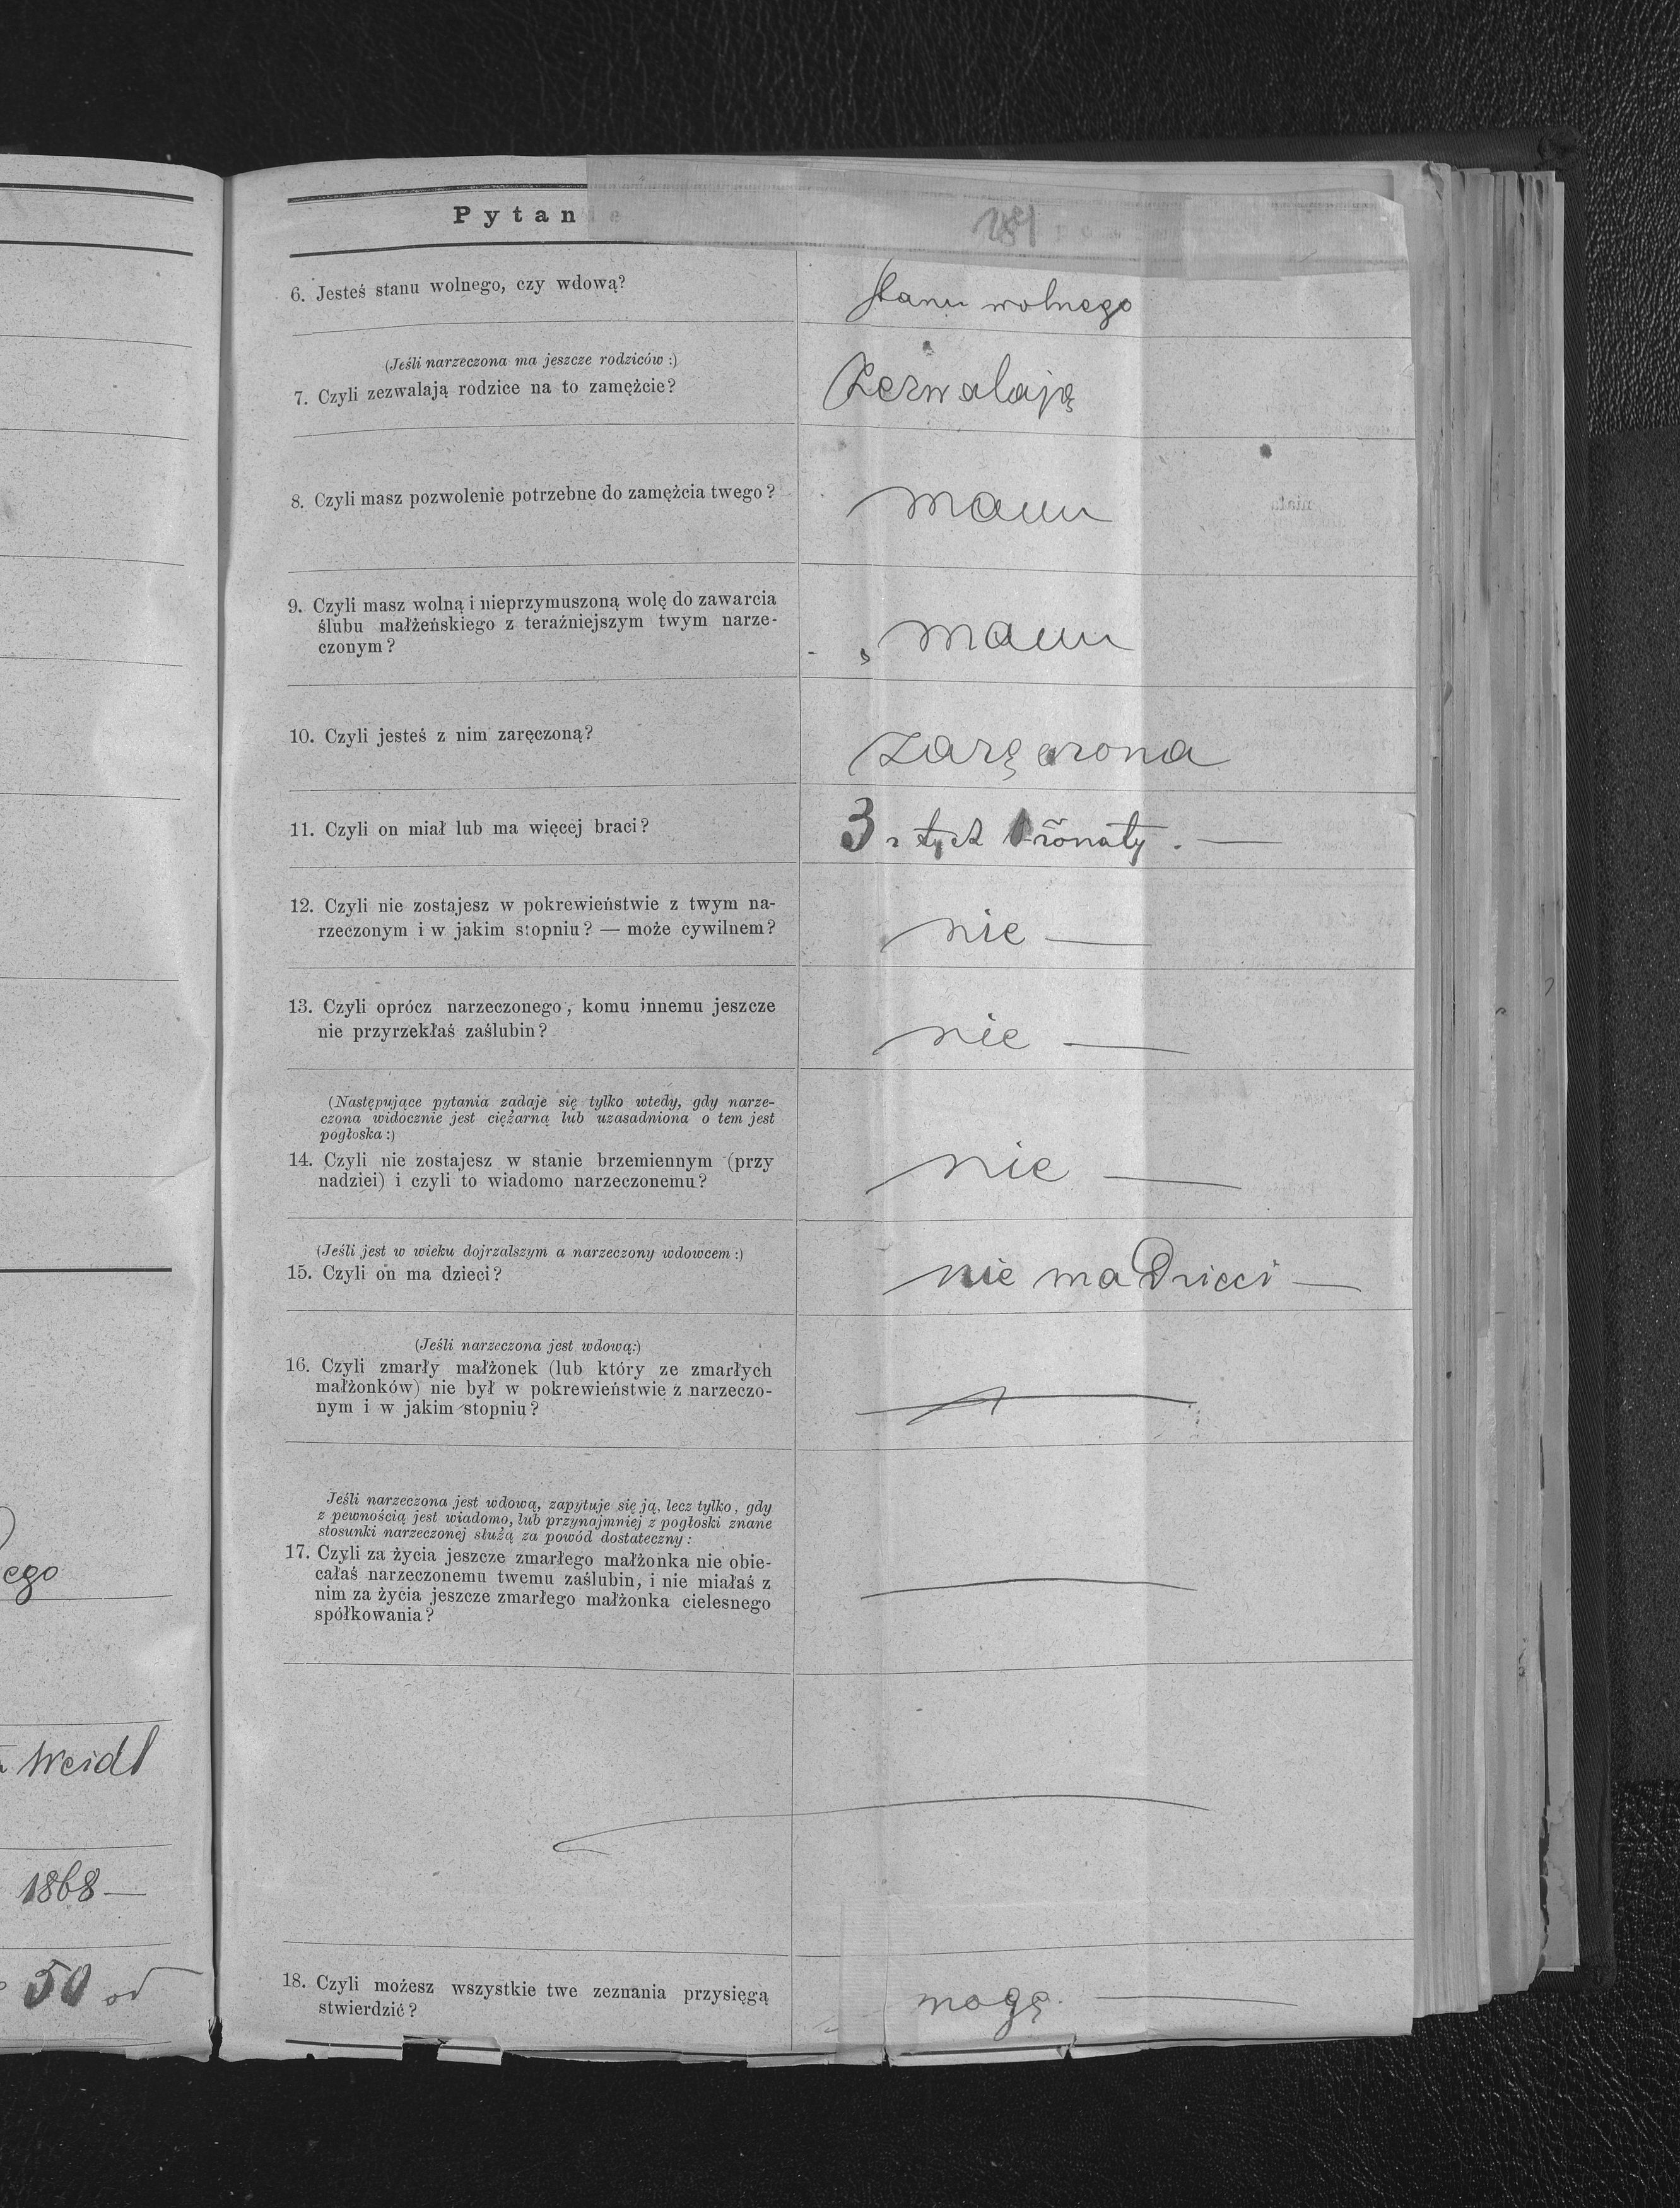 Pytanie
281
6. Jesteś stanu wolnego, czy wdową?
stanu wolnego
(Jeśli narzeczona ma jeszcze rodziców :)
7. Czyli zezwalają rodzice na to zamężcie?
Zezwalają
8. Czyli masz pozwolenie potrzebne do zamężcia twego?
mam
9. Czyli masz wolną i nieprzymuszoną wolę do zawarcia
ślubu małżeńskiego z teraźniejszym twym narze-
czonym?
mam
10. Czyli jesteś z nim zaręczoną?
zaręczona
11. Czyli on miał lub ma więcej braci?
3 z tych 1 żonaty. —
12. Czyli nie zostajesz w pokrewieństwie z twym na-
rzeczonym i w jakim stopniu? — może cywilnem?
nie —
13. Czyli oprócz narzeczonego, komu innemu jeszcze
nie przyrzekłaś zaślubin?
nie —
(Następujące pytania zadaje się tylko wtedy, gdy narze-
czona widocznie jest ciężarną lub uzasadniona o tem jest
pogłoska :)
14. Czyli nie zostajesz w stanie brzemiennym (przy
nadziei) i czyli to wiadomo narzeczonemu?
nie —
(Jeśli jest w wieku dojrzalszym a narzeczony wdowcem :)
15. Czyli on ma dzieci?
nie ma Dzieci —
(Jeśli narzeczona jest wdową:)
16. Czyli zmarły małżonek (lub który ze zmarłych
małżonków) nie był w pokrewieństwie z narzeczo-
nym i w jakim stopniu?
Jeśli narzeczona jest wdową, zapytuje się ją, lecz tylko, gdy
z pewnością jest wiadomo, lub przynajmniej z pogłoski znane
stosunki narzeczonej służą za powód dostateczny :
17. Czyli za życia jeszcze zmarłego małżonka nie obie-
całaś narzeczonemu twemu zaślubin, i nie miałaś z
nim za życia jeszcze zmarłego małżonka cielesnego
spółkowania?
18. Czyli możesz wszystkie twe zeznania przysięgą
stwierdzić?
mogę. —
ego
Weidl
1868 —
50 od